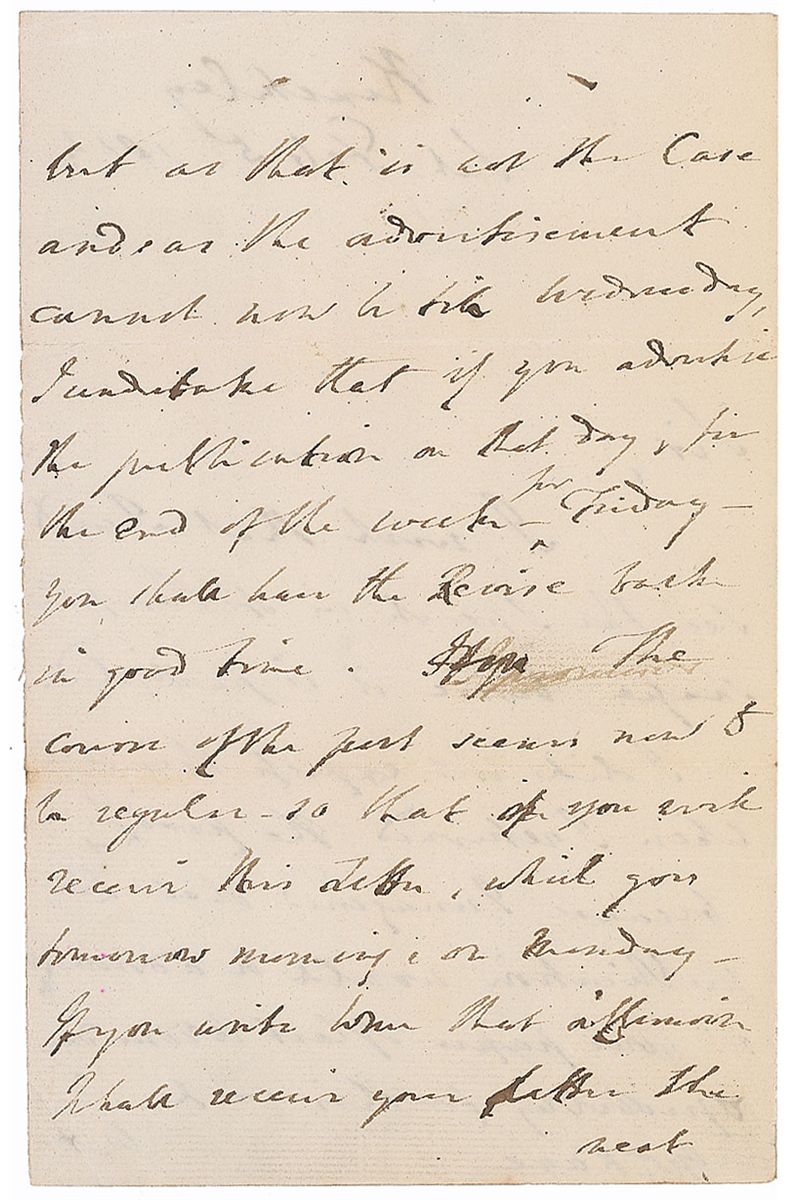 but as that is not the Case
and as the advertisement
cannot now be till Wednesday,
I undertake that if you advertise
the publication on that day, for
the end of the week – for Friday –
you shall have the Revise back
in good time. The
course of the post seems now to
be regular – so that you will
receive this Letter, which goes
tomorrow morning, on Monday –
If you write to me that afternoon
I shall receive your Letter the
next